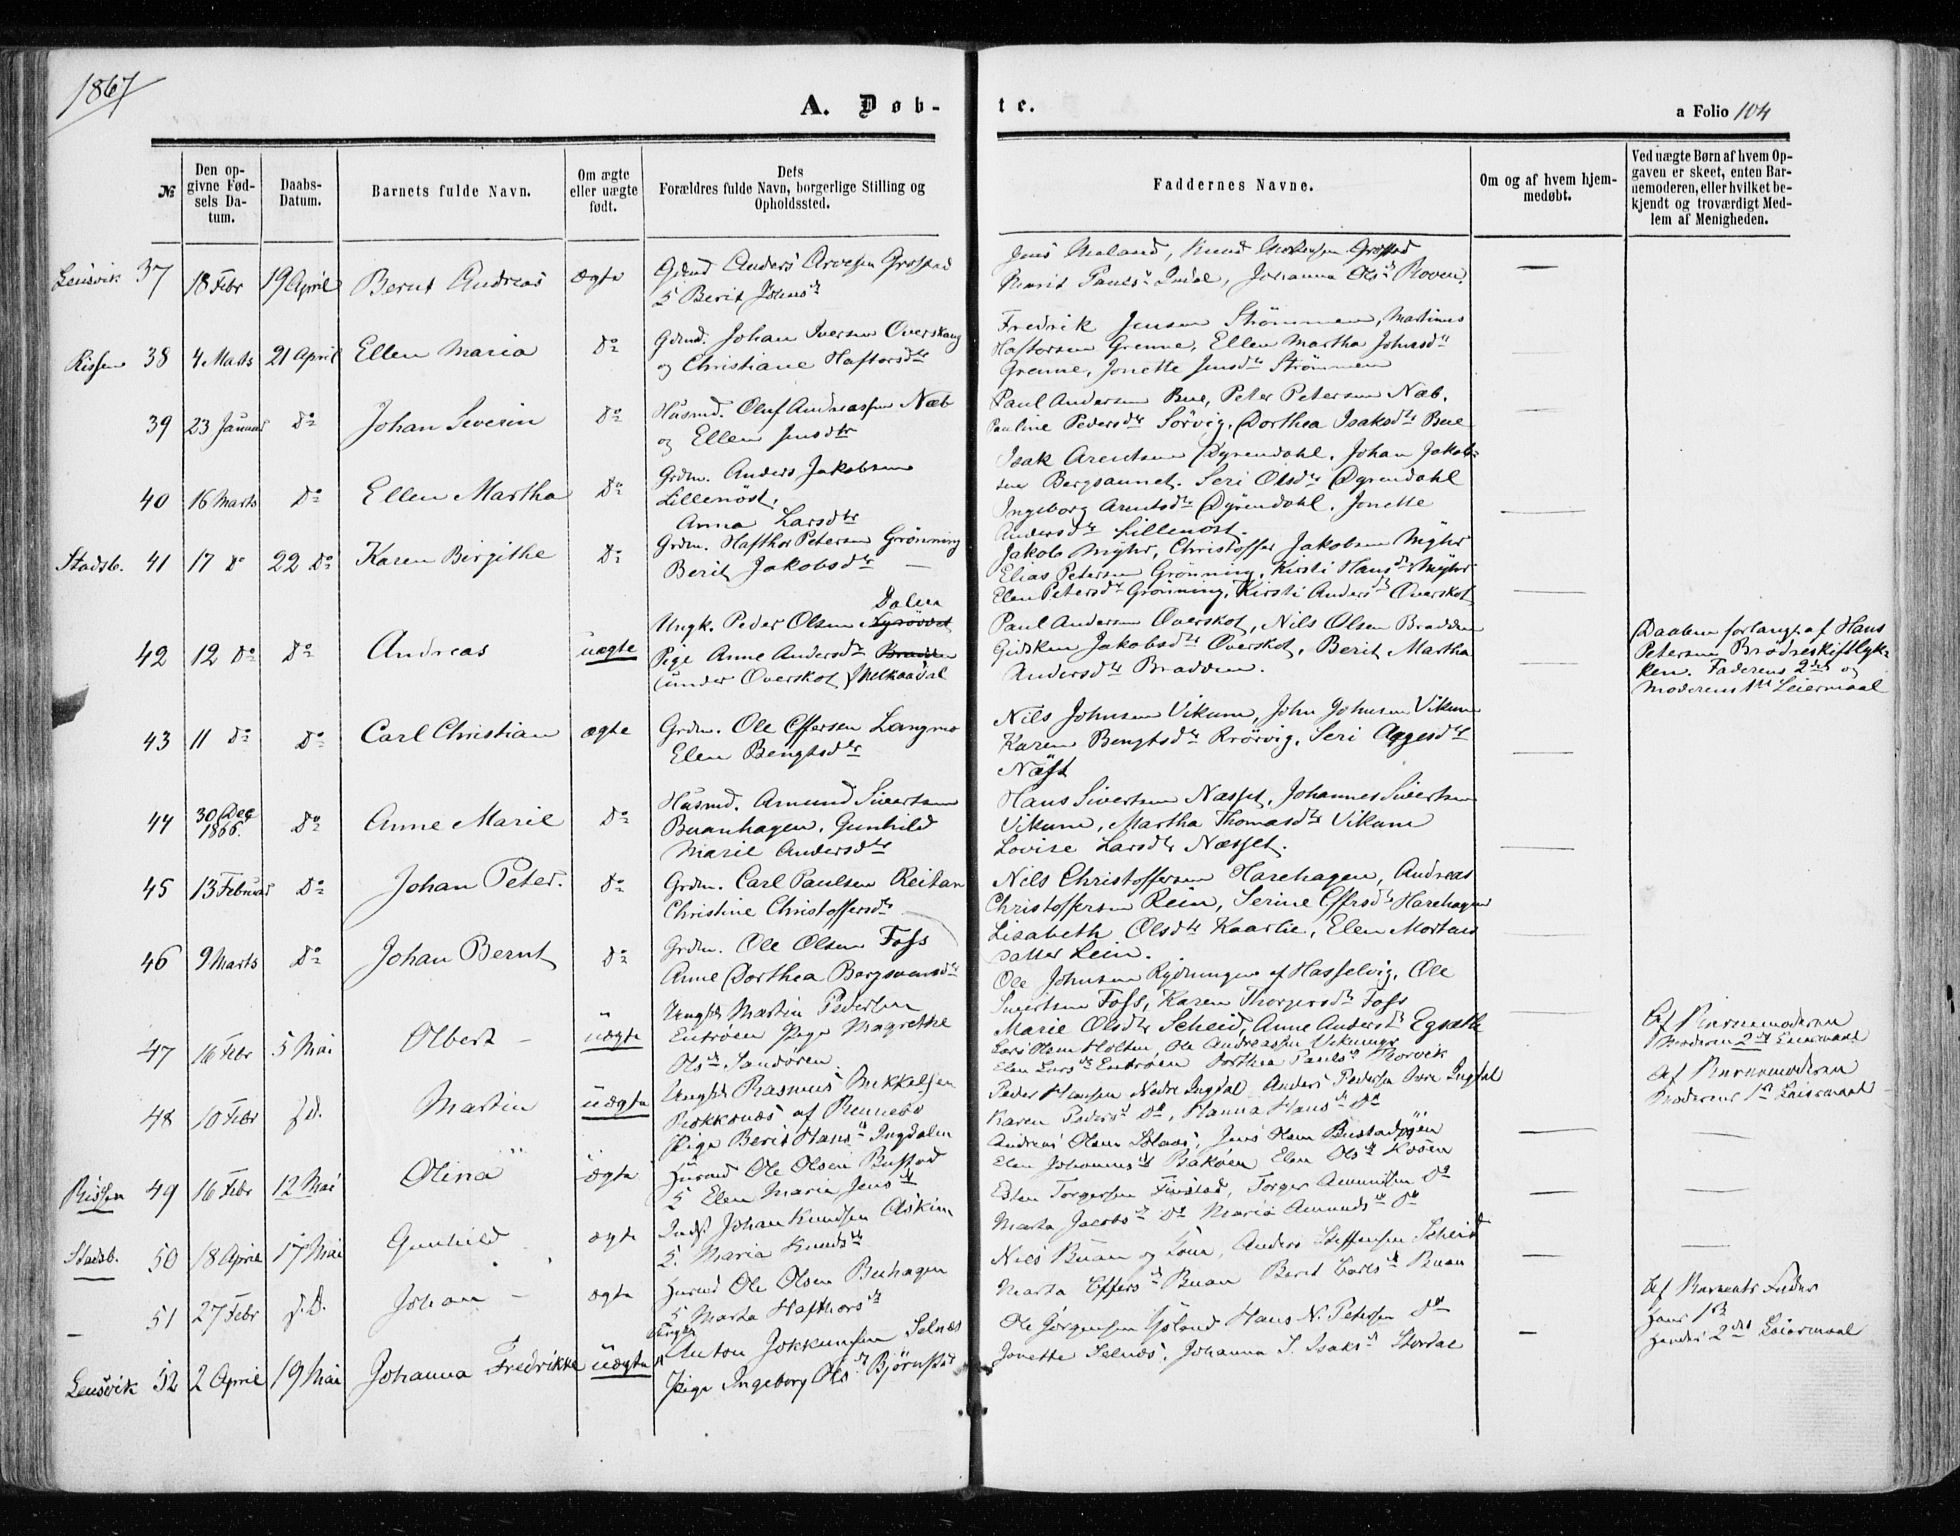 1867
A. Døb-
te.
a Folio 104
№
Den op-
givne Fød-
sels Da-
tum.
Daabs-
Datum.
Barnets fulde Navn.
Om ægte
eller uægte
født.
Dets
Forældres fulde Navn, borgerlige Stilling og
Opholdssted.
Faddernes Navne.
Om og af hvem hjem-
medøbt.
Ved uægte Børn af hvem Op-
gaven er skeet, enten Bar-
nemoderen, eller hvilket be-
kjendt og troværdigt Med-
lem af Menigheden.
Lensvik 37 18 Febr 19 April Bernt Andreas ægte
Gdmd Anders Arvesen Grøstad
Berit Johns dr
Jens Meland, Knud
Marit Pauls dr Indal, Johanna Ols dr Roven.
—
Rissen 38 4 Marts 21 April Ellen Maria Do
Gdmd. Johan Iversen Overskaug
og Christiane Haftorsdtr
Fredrik Jensen Strömmen, Martinus
Haftorsen Grenne, Ellen Martha Johnsdtr
Grenne, Jonette Jensdtr Strömmen
39 23 Januar Do Johan Severin Do
Husmd. Oluf Andreassen Næb
og Ellen Jensdtr
Paul Andersen Bue, Peter Petersen Næb.
Pauline Pedersdtr Sörvig. Dorthea Isaksdtr Bue
40 16 Marts Do Ellen Martha Do
Grdm. Anders Jakobsen
Lillenöst,
Anna Larsdtr
Isak Arentsen Dyrendahl. Johan Jakob-
sen Bergsaunet. Seri Olsdtr Dyrendahl
Ingeborg Arentsdtr Dyrendahl. Jonette
Andersdtr Lillenöst.
Stadsb. 41 17 Do 22 Do Karen Birgithe Do
Grdm. Hafthor Petersen Grönning
Berit Jakobsdtr —
Jakob Myhr, Christoffer Jakobsen Myhr
Elias Petersen Grönning, Kirsti Hansdtr Myhr
Elen Petersdtr Grönning, Kirsti Andersdtr Overskot
42 12 Do Do Andreas uægte
Dalen
Ungk. Peder Olsen
Pige Anne Andersdtr Bradden
(under Overskot)
Paul Andersen Overskot, Nils Olsen Bradden
Gidsken Jakobsdtr Overskot, Berit Martha
Andersdtr Bradden.
Daaben forlangt af Hans
Petersen Brödreskiftlyk-
ken. Faderens 2det og
Moderens 1ste Leiermaal
43 11 Do Do Carl Christian ægte
Grdm. Ole Effersen Langmo
Elen Bengtsdtr
Nils Johnsen Vikum, John Johnsen Vikum
Karen Bengtsdtr Rrörvig, Seri Aggesdtr
Näst
44 30 Dec
1866. Do Anne Marie Do
Husmd. Amund Sivertsen
Buanhagen, Gunhild
Marie Andersdtr
Hans Sivertsen Næsset, Johannes Sivertsen
Vikum, Martha Thomasdtr Vikum
Lovise Larsdtr Næsset.
45 13 Februar Do Johan Peter. Do
Grdm. Carl Paulsen Reitan
Christine Christoffersdtr
Nils Christoffersen Harehagen, Andreas
Christoffersen Rein, Serine Effersdtr Harehagen
Lisabeth Olsdtr Kaarlie, Elen Mortens
datter Lein.
46 9 Marts Do Johan Bernt Do
Grdm. Ole Olsen Foss
Anne Dorthea Bergsvensdtr
Ole Johnsen Rydningen af Hasselvig. Ole
Sivertsen Foss, Karen Thorgersdtr Foss
Marie Olsdtr Scheid, Anne Andersdtr Egsæth
47 16 Febr 5 Mai Olbert — uægte
Ungk Martin Pedersen
Entröen Pige Magrethe
Ols dr Sandören.
Lars Olsen Holten Ole Andreassen
Elen Lars dr Enteröen Dorthea Pauls dr Rorvik
Af Barnemoderen
Moderens 2det Leiermaal
48 10 Febr s.D. Martin uægte
Ungk Rasmus Mikkelsen
af Rennebo
Pige Berit Hans dr Ingdalen
Peder Hansen Nedre Ingdal Anders Pedersen Øvre Ingdal
Karen Peders dr Do, Hanna Hans dr Do
Af Barnemoderen
Moderens 1ste Leiermaal
Rissen 49 16 Febr 12 Mai Olina ægte
Husmd Ole Olsen Bustad
Elen Maria Jens dr
Andreas Olsen, Jens Olsen
Elen Johannes dr Bakøen Elen Ols dr
Stadsb. 50 18 April 17 Mai Gunhild ægte
Inds Johan Knudsen Askim
Maria Knuds dr
Esten Torgersen Finstad, Torger Amundsen Do
Marta Jacobs dr Do Maria Amunds dr Do
— 51 27 Febr s.D. Johan — ægte
Husmd Ole Olsen Buhagen
Marta Hafthors dr
Niels Buan og Kone, Anders Steffensen Scheid
Marta Effers dr Buan Berit Carls dr Buan
Lensvik 52 2 April 19 Mai Johanna Fredrikke uægte
Ungk
Anton Jokkumsen Selnæs
Pige Ingeborg Ols dr Bjørnstad
Ole Jørgensen Hans N. Petersen Do
Jonette Selnæs, Johanna S. Isaks dr Stordal
—
Af Barnets Fader
Hans 1ste
Hendes 2det Leiermaal